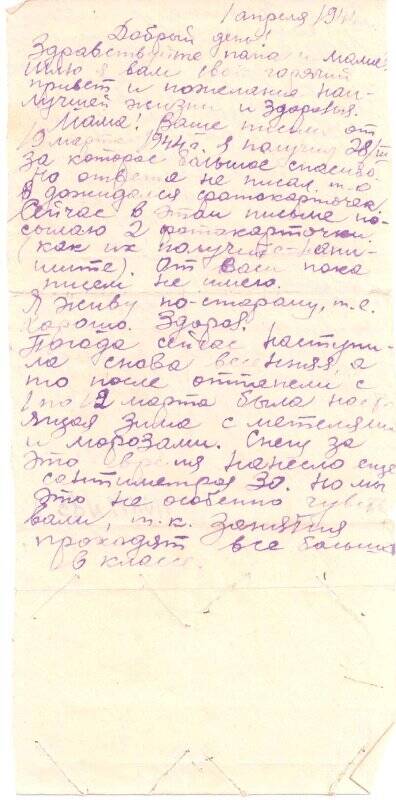 1 апреля 194
Добрый день!
Здравствуйте папа и мама!
Шлю я вам свой горячий
привет и пожелание наи-
лучшей жизни и здоровья.
Мама! Ваше письмо от
9 марта 1944г. я получил 28/III
за которое большое спасибо,
Но ответа не писал, т.к
дожидался фотокарточек
Сейчас в этом письме по-
сылаю 2 фотокарточки.
(как их получите - напи-
шите). От Васи пока
писем не имею.
Я живу по-старому, т.е.
хорошо. Здоров.
Погода сейчас наступи-
ла снова весенняя, а
то после оттепели с
1 по 12 марта была насто-
ящая зима с метелями
и морозами. Снегу за
это время нанесло еще
сантиметров 30. Но мы
это не особенно чувст
вали, т.к. занятия
проходят все больше
в классе.